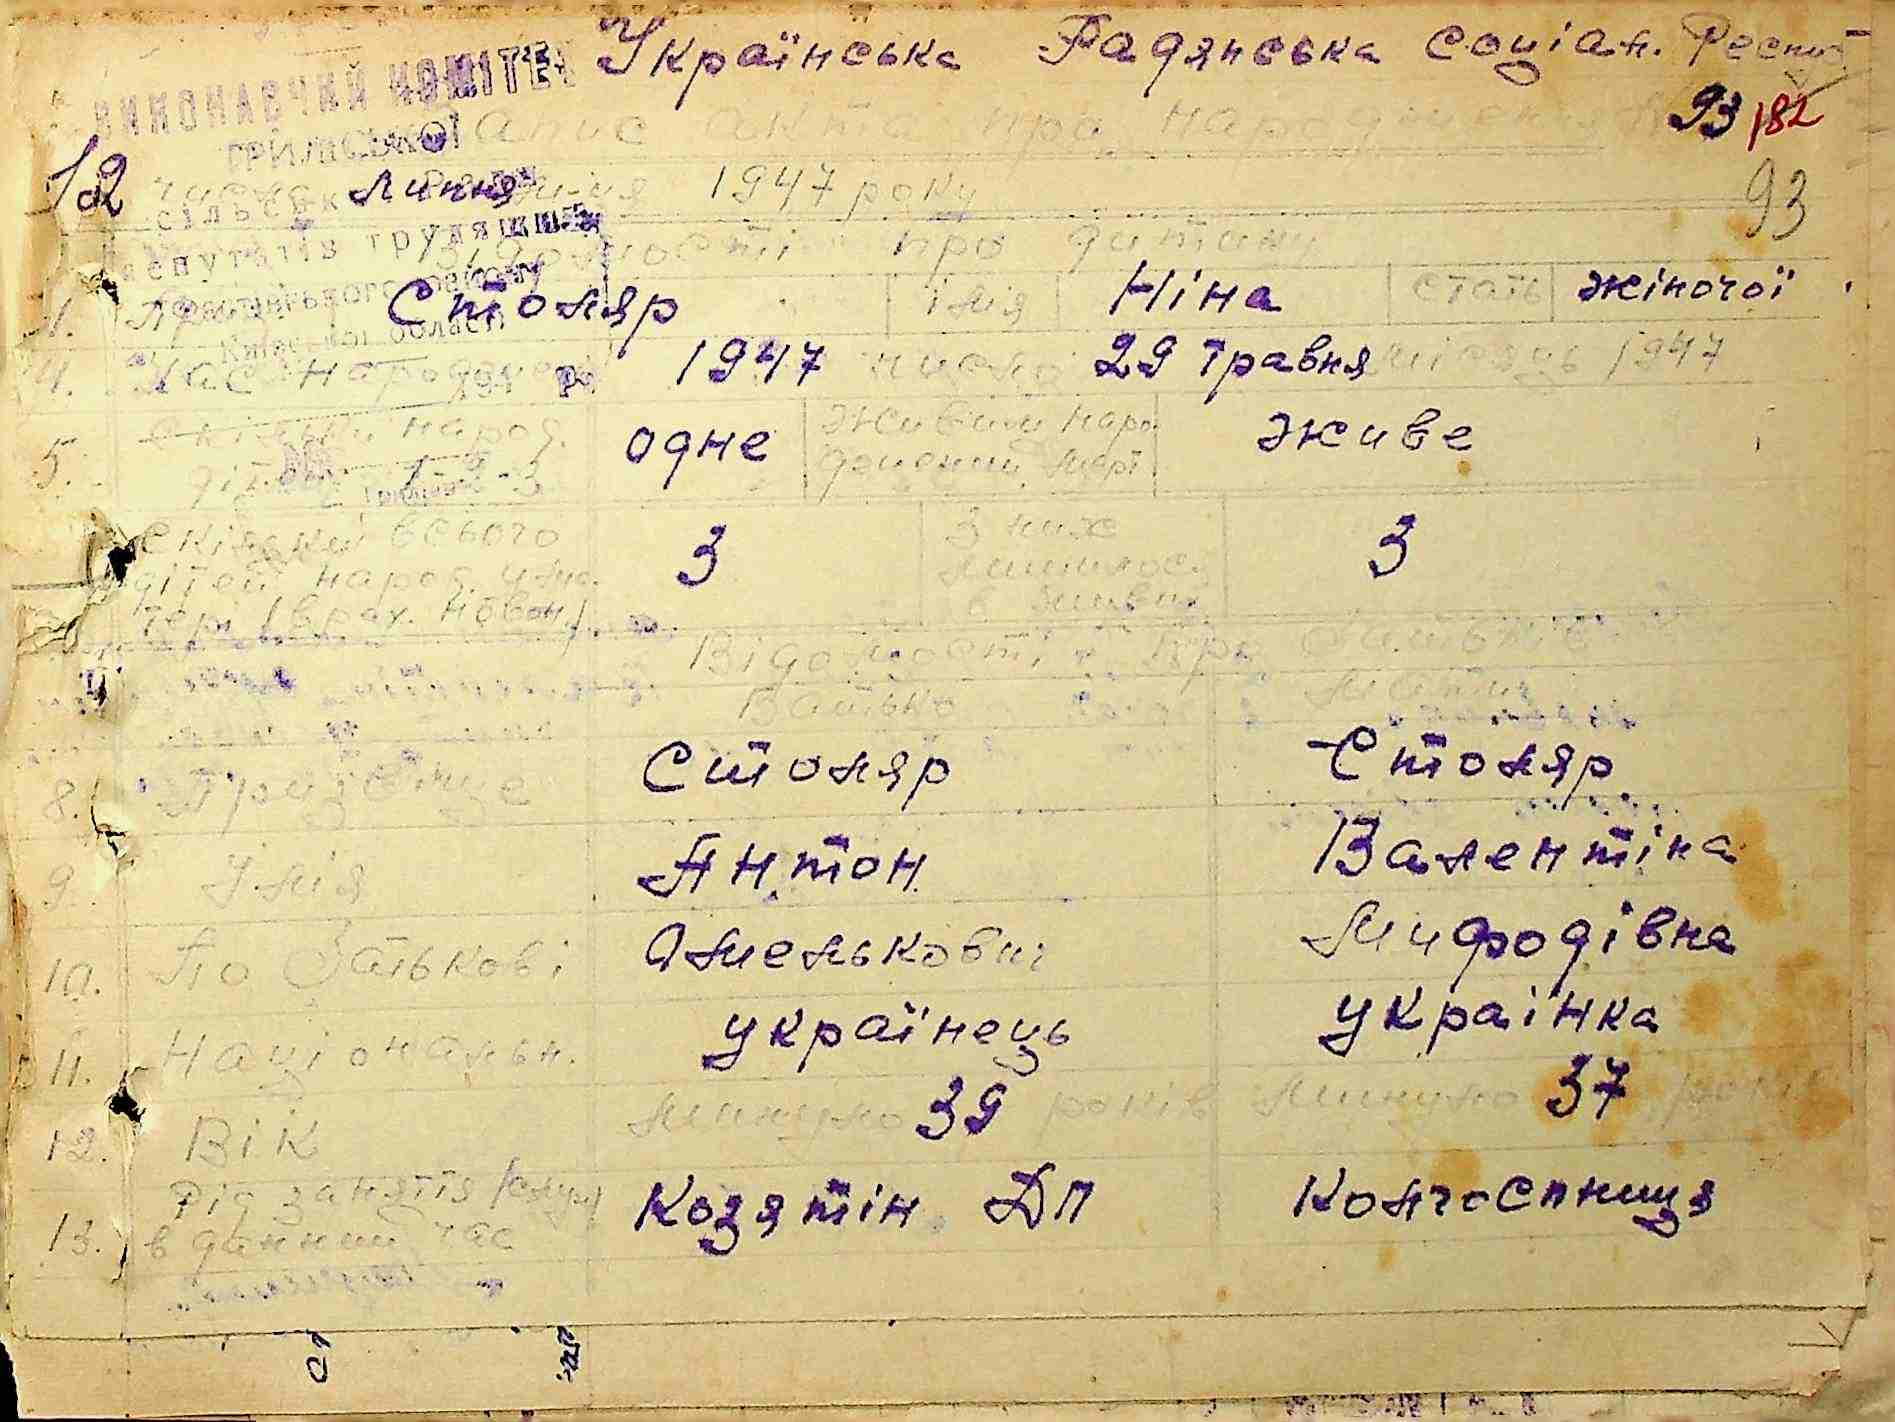 Українська Радянська Соціал. Респуб
ВИКОНАВЧИЙ КОМІТЕТ
93 182
Запис акта про народження
12 числа липня м-ця 1947 року
93
сільської
депутатів трудящих
Відомості про дитину
1. Пр Столяр імія Ніна стать жіночої
Київської області
4. Час народжен 1947 число 29 травня місяць 1947
5. скільки народ. дітей 1-2-3 одне живим наро дженний мерт живе
Скільки всього дітей народ. у ма тері /врах. новон/ 3 З них лишилось в живих 3
Відомості про батьків
Батько мати
8. Прізвіще Столяр Столяр
9. Імія Антон Валентіна
10. По батькові Омелькович Мифодівна
11. Національн. українець украінка
12. Вік минуло 39 років минуло 37 років
13. Рід заняття /служ/ в данний час Козятін ДП Колгоспниця